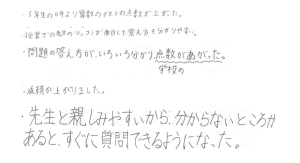 ・5年生の時より算数のテストの点数が上がった。
・授業での先生のツッコミが面白くて覚え方も分かりやすい。
・問題の答え方が、いろいろ分かり、点数があがった。
学校の
・成績が上がりました。
・先生と親しみやすいから、分からないところが
あると、すぐに質問できるようになった。